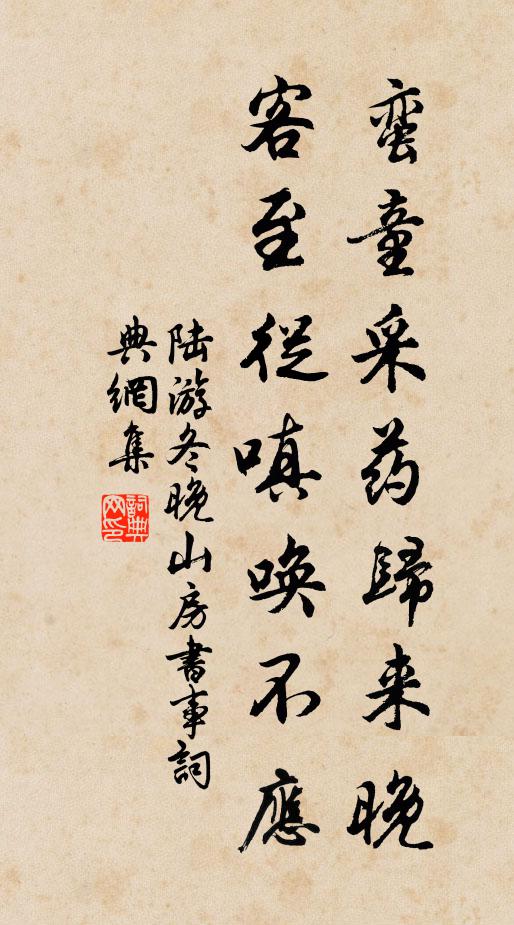 蛮童采药歸来晚
客至從嗔唤不應
陆游冬晚山房書事詞
典網集
詞典网印